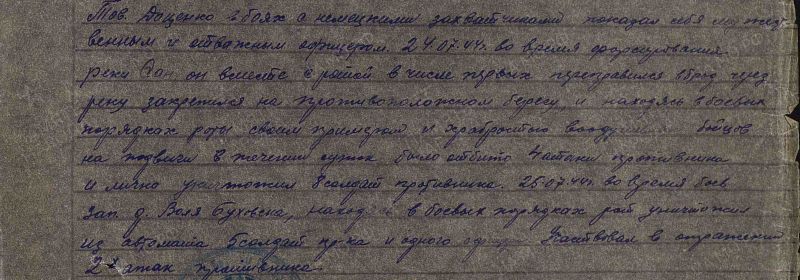 Тов. Доценко в боях с немецкими захватчиками показал себя мужест
венным и отважным офицером. 24.07.44г. во время форсирования
реки Сан он вместе с ротой в числе первых переправился вброд через
реку закрепился на противоположном берегу, и находясь в боевых
порядках роты своим примером и храбростью бойцов
на подвиги в течении суток было отбито 4 атаки противника
и лично уничтожил 8 солдат противника. 25.07.44г. во время боев
зап. д. Воля Буховска, в боевых порядках рот уничтожил
из автомата 6 солдат пр-ка и одного Участвовал в отражении
2х атак противника.